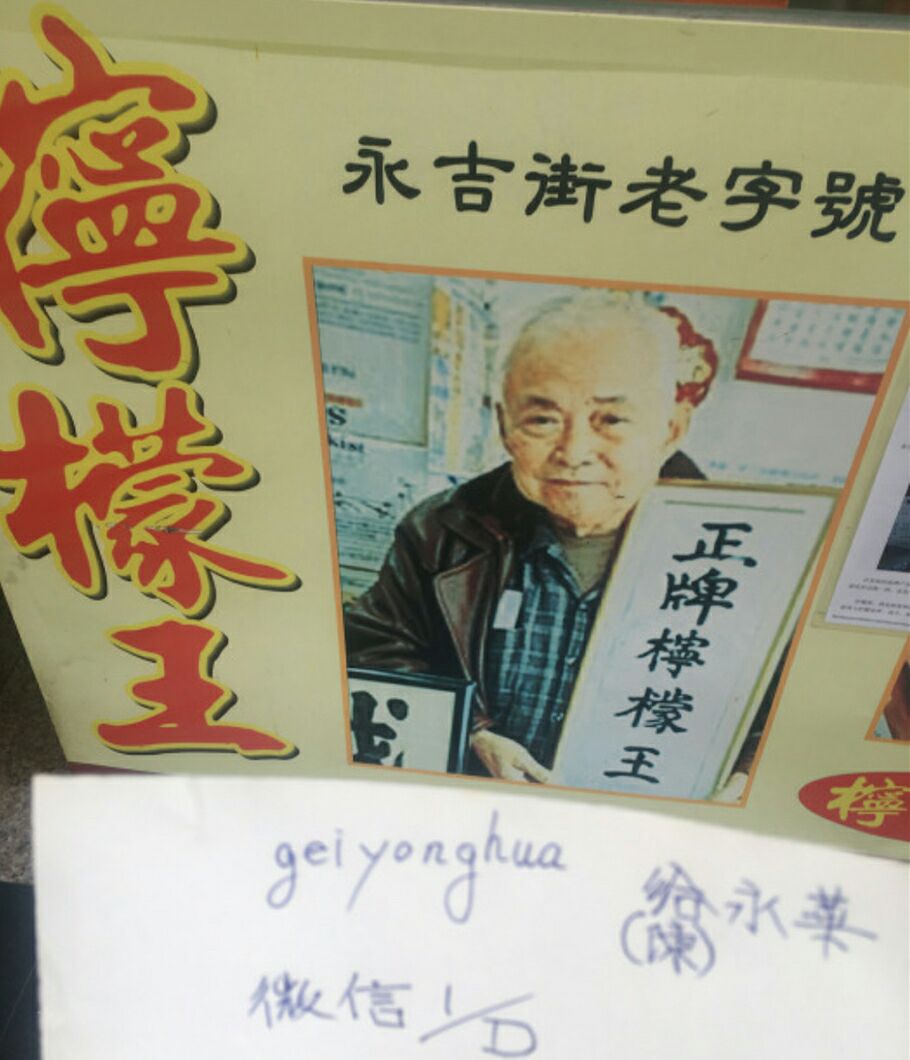 檸檬王
永吉街老字號
正牌檸檬王
檸
geiyonghua
給永華
(陳)
微信 I/D